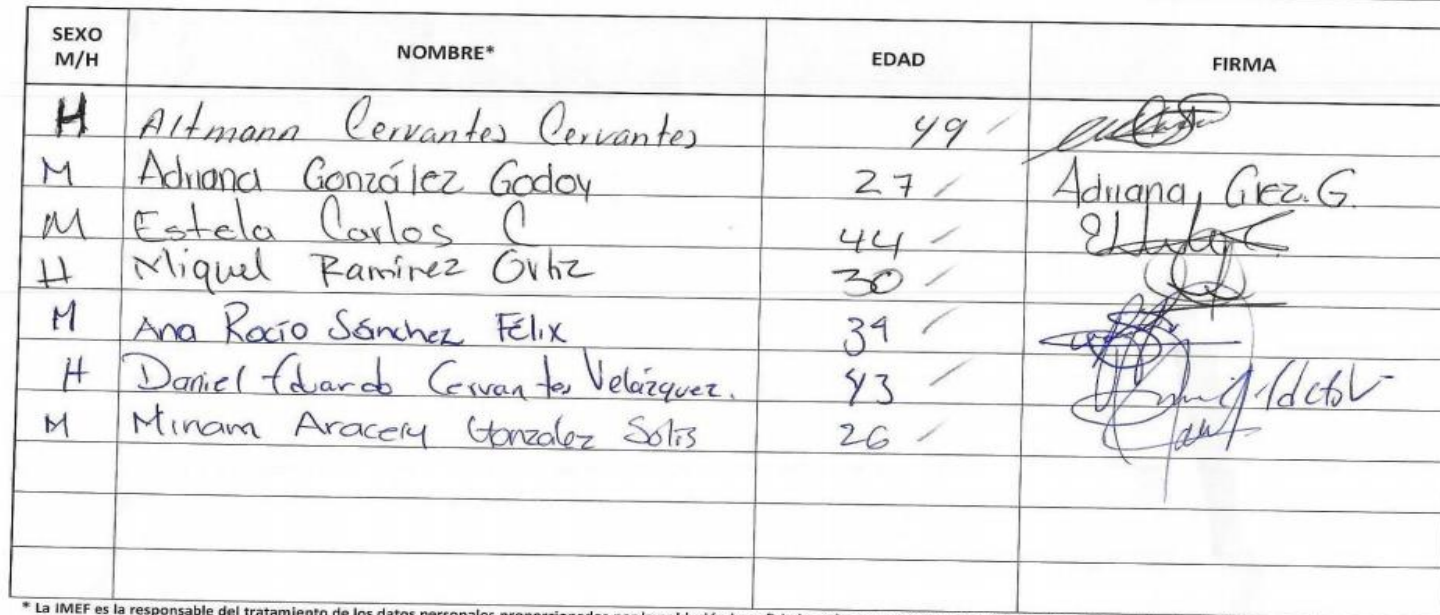 SEXO M/H NOMBRE* EDAD FIRMA
H Altmann Cervantes Cervantes 49
M Adriana González Godoy 27 Adriana Glez. G.
M Estela Carlos C 44
H Miguel Ramírez Ortiz 30
M Ana Rocío Sánchez Félix 39
H Daniel Eduardo Cervantes Velázquez. 43
M Miriam Aracely Gonzalez Solis 26
* La IMEF es la responsable del tratamiento de los datos personales